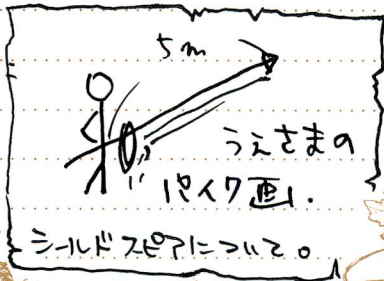 5m
うえさまの
パイク画。
シールドスピアについて。